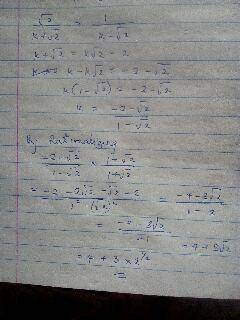 √2/(k+√2) = 1/(k-√2)
k+√2 = k√2 - 2
k - k√2 = -2-√2
k(1-√2) = -2-√2
k = (-2-√2)/(1-√2)
By Rationalising
(-2-√2)/(1-√2) × (1+√2)/(1+√2)
= (-2-2√2-√2-2)/(1²-(√2)²) = (-4-3√2)/(1-2)
= (-4-3√2)/-1 = 4+3√2
= 4+3×2^1/2